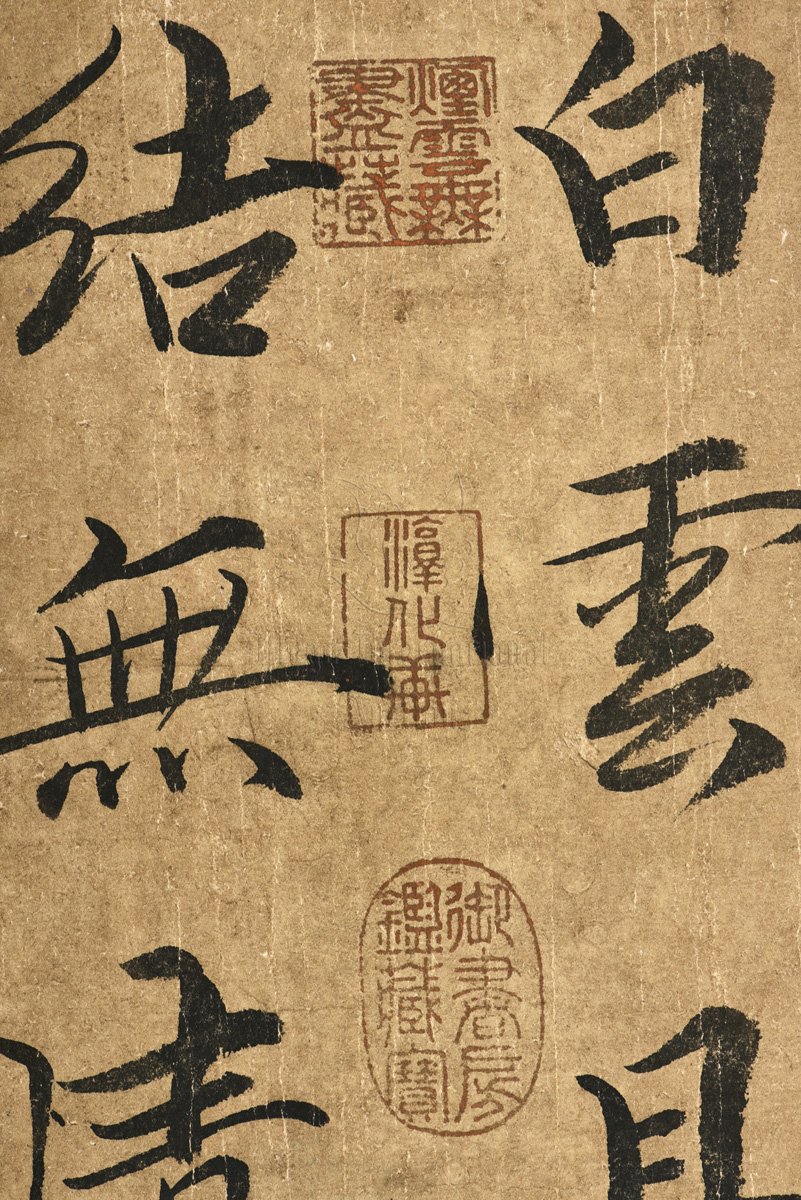 白雲
煙雲無
盡藏
淳化軒
御書房
鑑藏寶
結無情